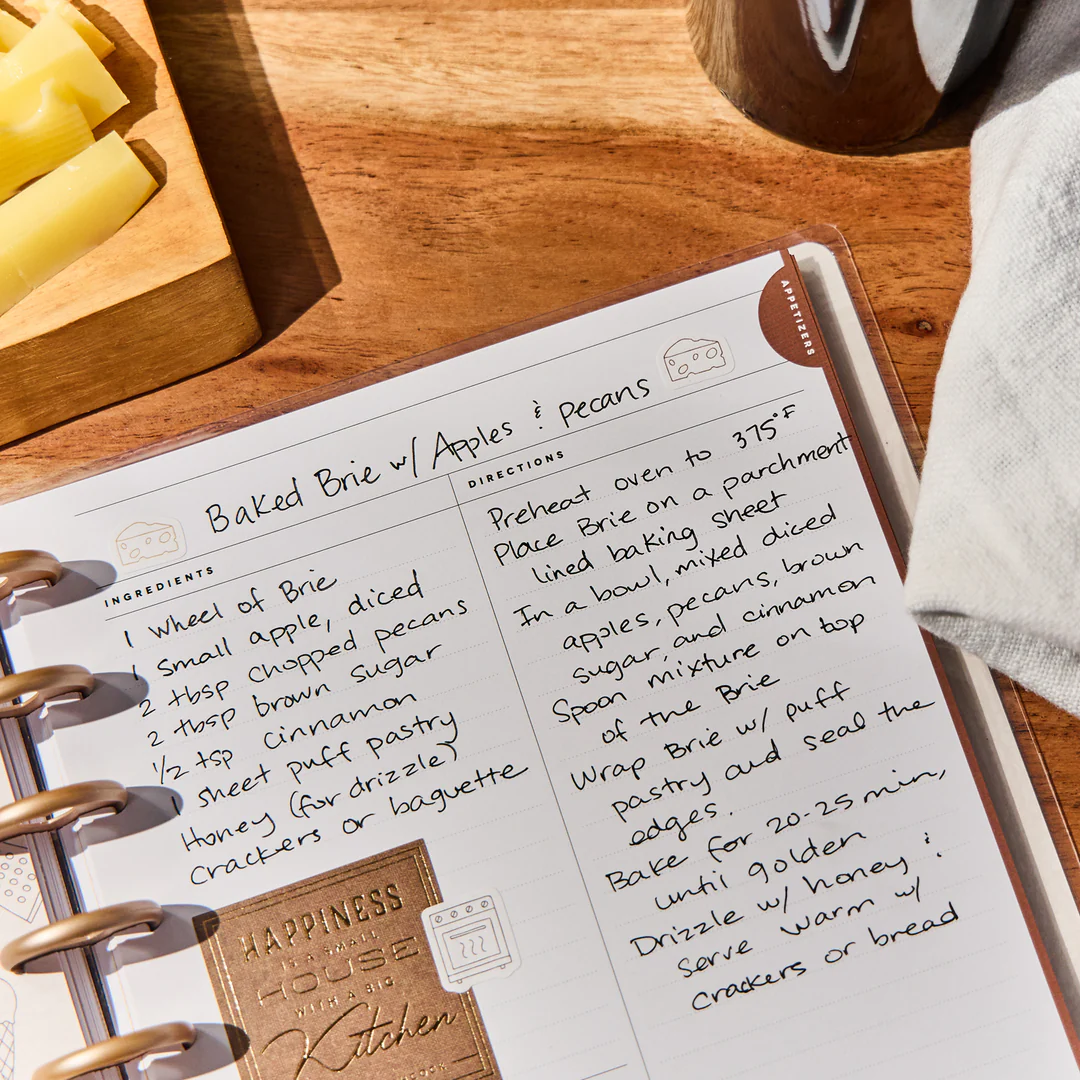 APPETIZERS
Baked Brie w/ Apples & pecans
INGREDIENTS
1 wheel of Brie
1 small apple, diced
2 tbsp chopped pecans
2 tbsp brown sugar
1/2 tsp cinnamon
1 sheet puff pastry
Honey (for drizzle)
Crackers or baguette
DIRECTIONS
Preheat oven to 375°F
Place Brie on a parchment
lined baking sheet
In a bowl, mixed diced
apples, pecans, brown
sugar, and cinnamon
Spoon mixture on top
of the Brie
Wrap Brie w/ puff
pastry and seal the
edges.
Bake for 20-25 min,
until golden
Drizzle w/ honey &
serve warm w/
crackers or bread
HAPPINESS
IS A SMALL
HOUSE
WITH A BIG
Kitchen